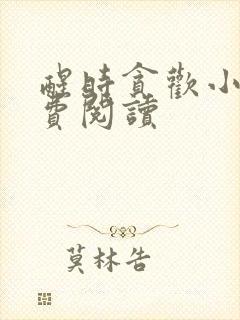 醒時貪歡小
費閱讀
莫林告